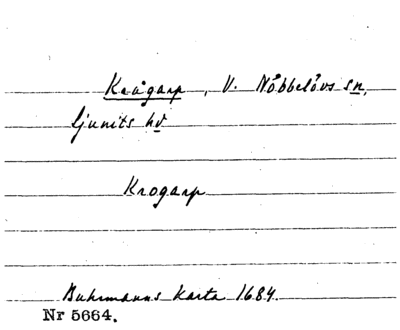 Krågarp, V. Nöbbelövs sn,
Ljunits hd
Krogarp
Buhrmanns Karta 1684.
Nr 5664.